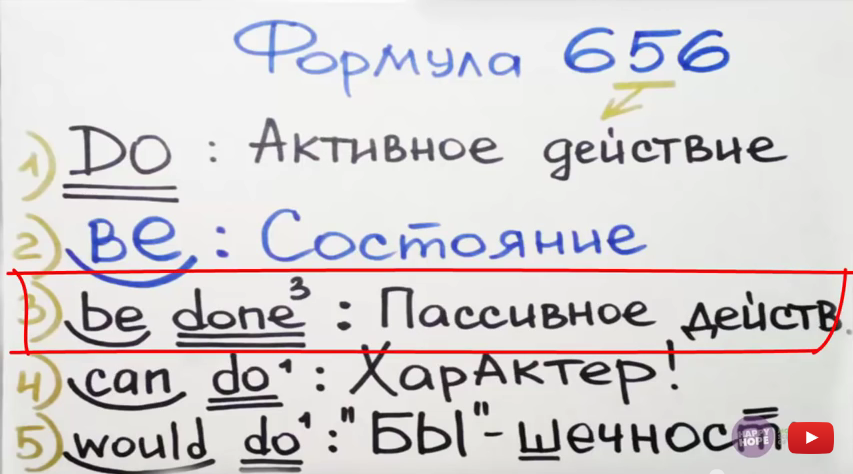 Формула 656
1) DO : Активное действие
2) Be : Состояние
3) be done³ : Пассивное действ.
4) can do¹ : ХарАктер!
5) would do¹ : "БЫ"-шечност
HAPPY HOPE